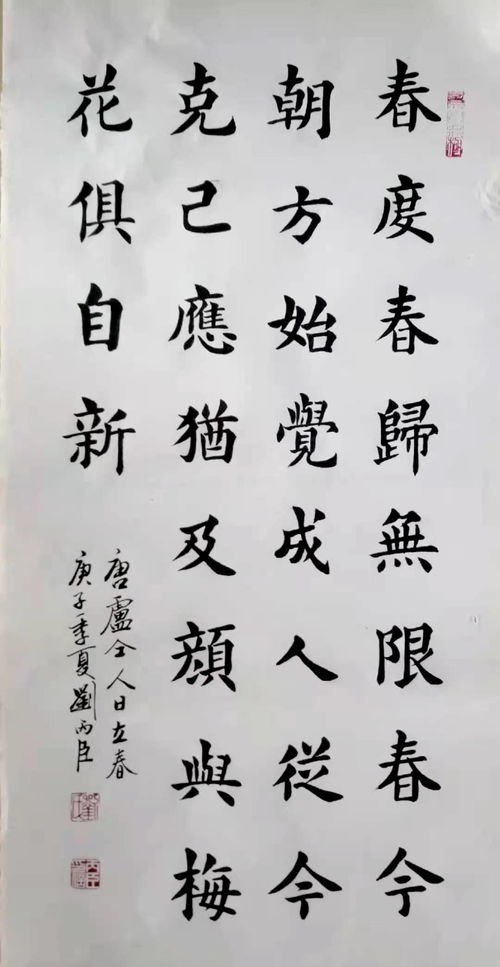 春度春歸無限春今
朝方始覺成人從今
克己應猶及顏與梅
花俱自新
唐盧仝人日立春
庚子季夏劉丙臣